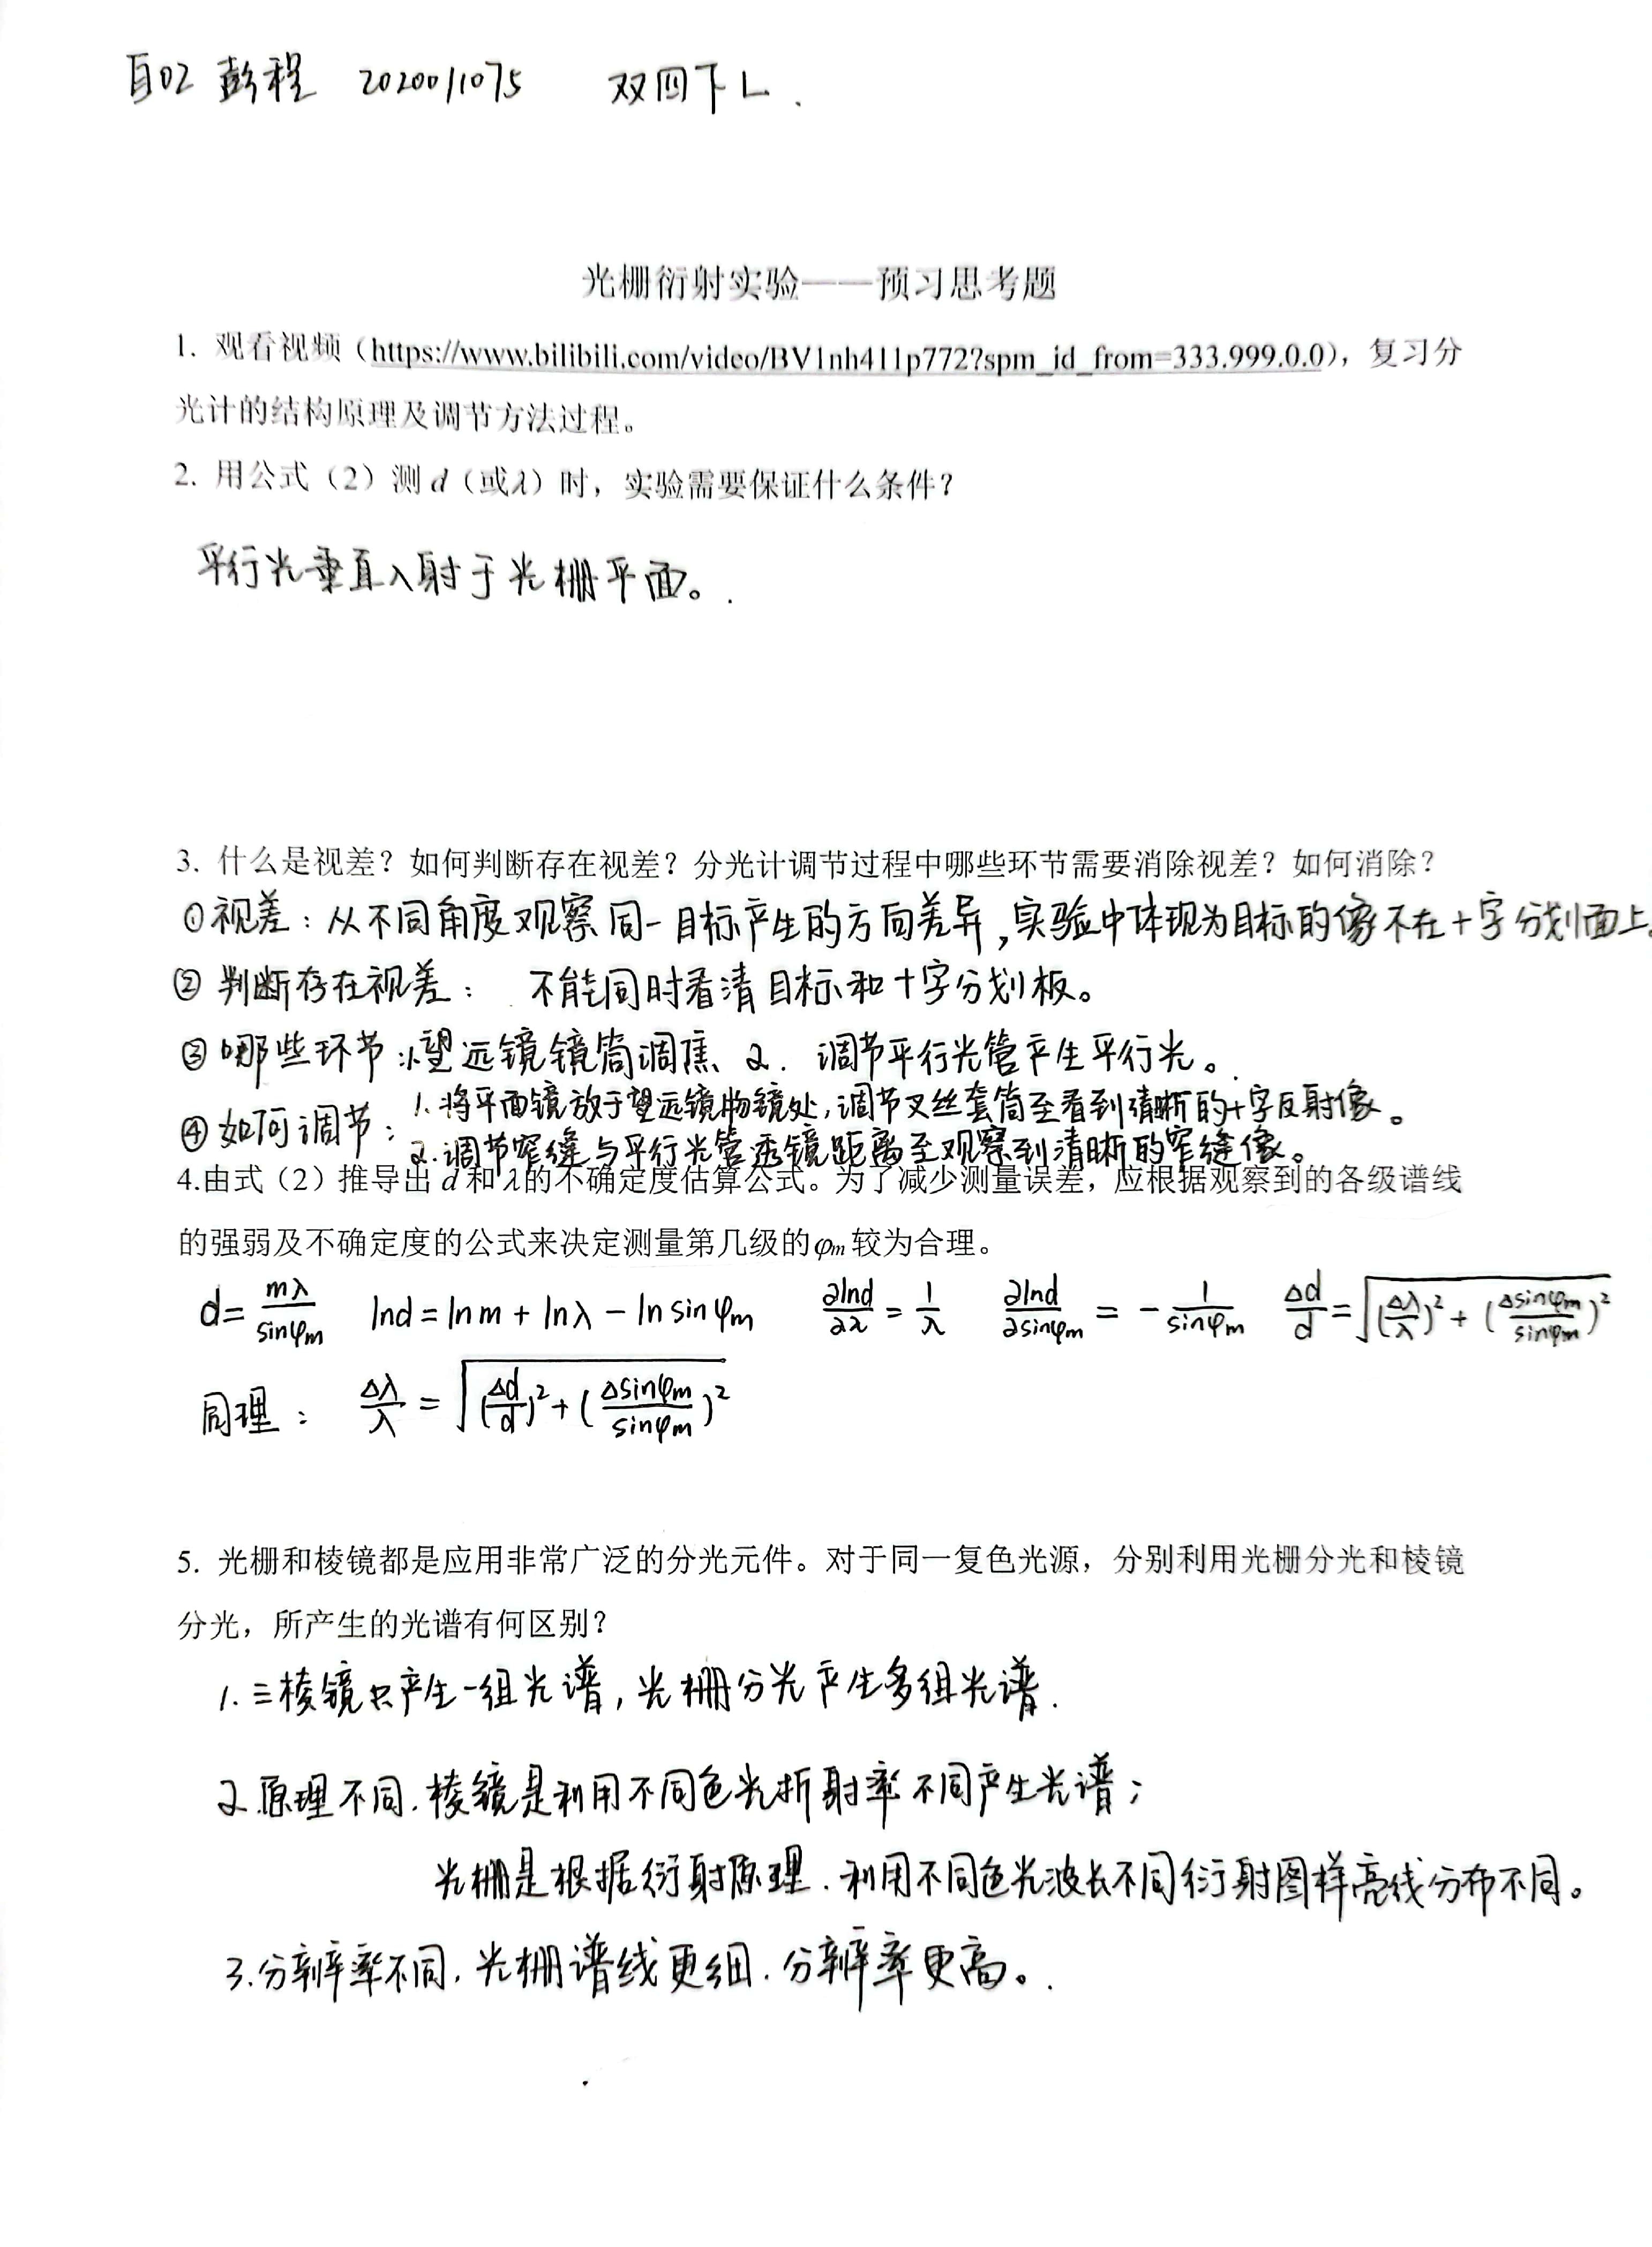 自02 彭程 2020011075 双四下L.
光栅衍射实验——预习思考题
1. 观看视频（https://www.bilibili.com/video/BV1nh411p772?spm_id_from=333.999.0.0），复习分
光计的结构原理及调节方法过程。
2. 用公式（2）测 d（或λ）时，实验需要保证什么条件？
平行光垂直入射于光栅平面。
3. 什么是视差？如何判断存在视差？分光计调节过程中哪些环节需要消除视差？如何消除？
①视差：从不同角度观察同一目标产生的方向差异，实验中体现为目标的像不在十字分划面上。
② 判断存在视差： 不能同时看清目标和十字分划板。
③ 哪些环节：1.望远镜镜筒调焦 2. 调节平行光管产生平行光。
④ 如何调节： 1. 将平面镜放于望远镜物镜处，调节叉丝套筒至看到清晰的十字反射像。
2. 调节窄缝与平行光管透镜距离至观察到清晰的窄缝像。
4.由式（2）推导出 d 和 λ 的不确定度估算公式。为了减少测量误差，应根据观察到的各级谱线
的强弱及不确定度的公式来决定测量第几级的φm 较为合理。
d = mλ/sinφm lnd = lnm + lnλ − ln sinφm ∂lnd/∂λ = 1/λ ∂lnd/∂sinφm = − 1/sinφm Δd/d = √((Δλ/λ)² + (Δsinφm/sinφm)²)
同理： Δλ/λ = √((Δd/d)² + (Δsinφm/sinφm)²)
5. 光栅和棱镜都是应用非常广泛的分光元件。对于同一复色光源，分别利用光栅分光和棱镜
分光，所产生的光谱有何区别？
1. 三棱镜只产生一组光谱，光栅分光产生多组光谱.
2. 原理不同. 棱镜是利用不同色光折射率不同产生光谱；
光栅是根据衍射原理. 利用不同色光波长不同衍射图样亮线分布不同。
3. 分辨率不同. 光栅谱线更细. 分辨率更高。